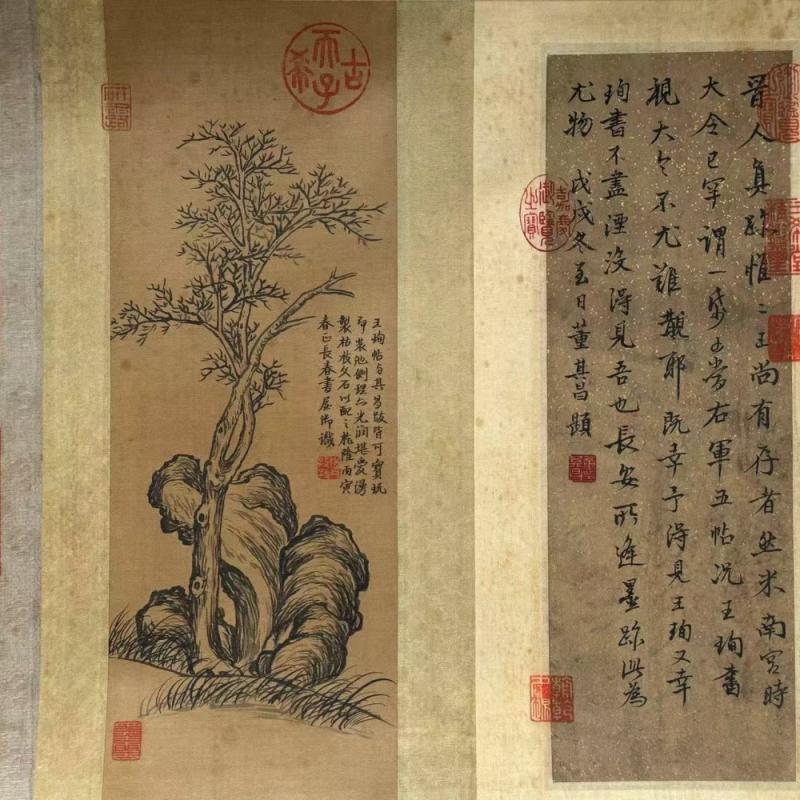 晉人真跡惟二王尚有存者然米南宮時
大令已罕謂一帋可當右軍五帖況王珣書
視大令不尤難覯耶既幸予得見王珣又幸
珣書不盡湮沒得見吾也長安所逢墨跡此為
尤物 戊戌冬至日董其昌題
嘉慶御覽之寶
古希天子
王珣帖與其昌跋皆可寶玩
即裝池側理亦光潤堪愛漫
製枯枝文石以配之乾隆丙寅
春正長春書屋御識